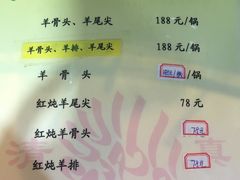 羊骨头、羊尾尖 188元/锅
羊骨头、羊排、羊尾尖 188元/锅
羊骨头 /锅
红炖羊尾尖 78元
红炖羊骨头
红炖羊排
清 真